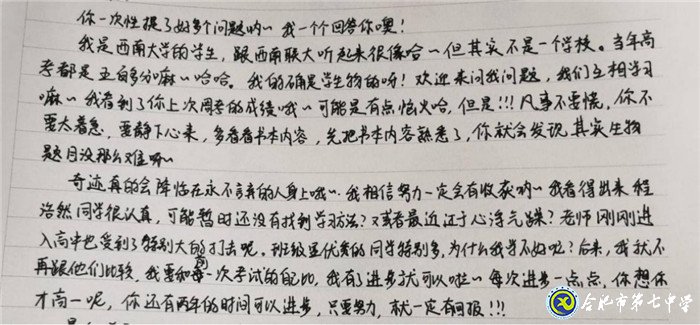 你一次性提了好多个问题哟~ 我一个个回答你噢!
我是西南大学的学生, 跟西南联大听起来很像哈~但其实不是一个学校。当年高
考都是五百多分嘛~哈哈。我的确是学生物的呀! 欢迎来问我问题, 我们互相学习
嘛~ 我看到了你上次周考的成绩哦~ 可能是有点恼火哈, 但是!!! 凡事不要慌, 你不
要太着急, 要静下心来, 多看看书本内容, 先把书本内容熟悉了, 你就会发现其实生物
题目没那么难嘛~
奇迹真的会降临在永不言弃的人身上哦~ 我相信努力一定会有收获哟~ 我看得出来 程
浩然同学很认真, 可能暂时还没有找到学习方法? 又或者最近过于心浮气躁? 老师刚刚进
入高中也受到了特别大的打击呢。班级里优秀的同学特别多, 为什么我学不好呢? 后来, 我就不
再跟他们比较, 我要和每一次考试的自己比, 我有进步就可以啦~ 每次进步一点点, 你想你
才高一呢, 你还有两年的时间可以进步, 只要努力, 就一定有回报!!!
合肥市第七中学